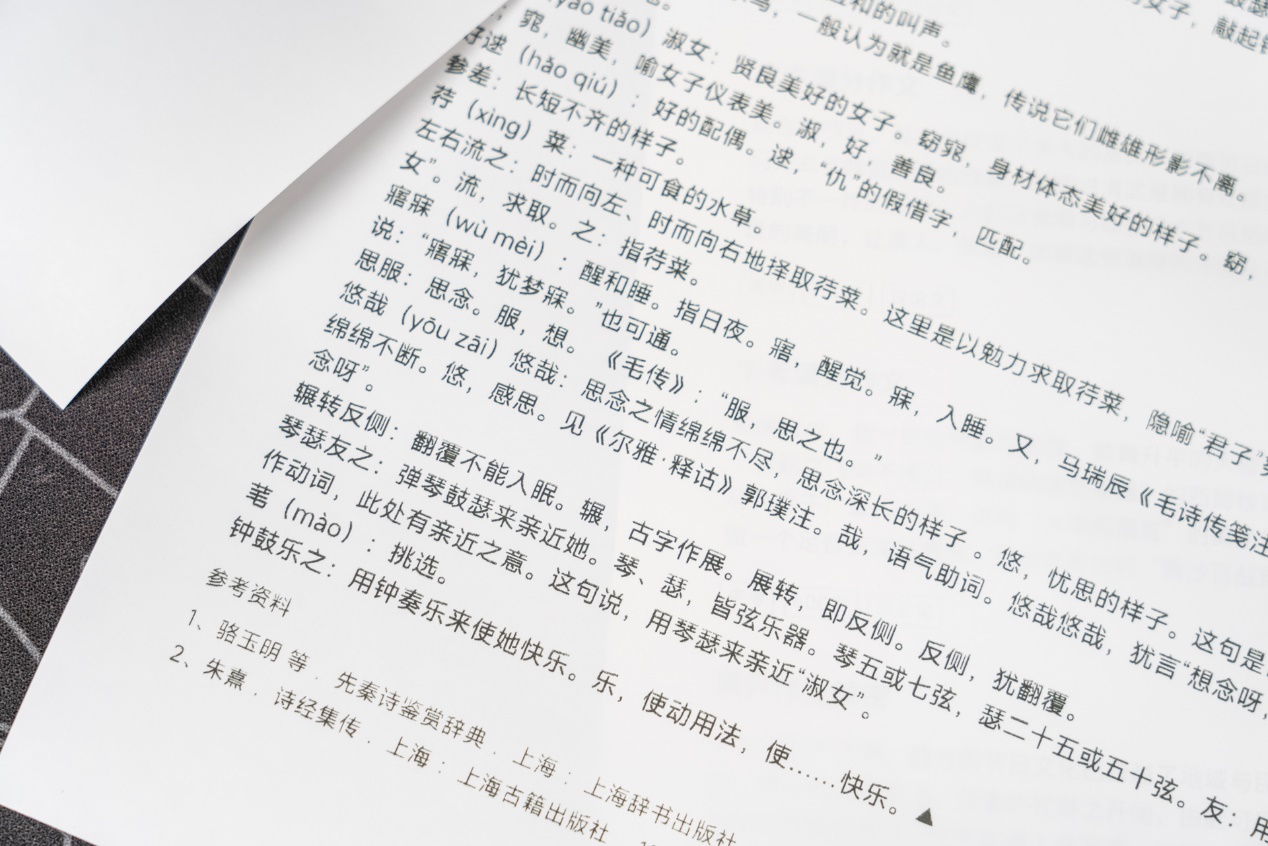 的女子，敲起
和的叫声。
鸟，一般认为就是鱼鹰，传说它们雌雄形影不离。
yǎo tiǎo）淑女：贤良美好的女子。窈窕，身材体态美好的样子。窈，
窕，幽美，喻女子仪表美。淑，好，善良。
好逑（hǎo qiú）：好的配偶。逑，“仇”的假借字，匹配。
参差：长短不齐的样子。
荇（xìng）菜：一种可食的水草。
左右流之：时而向左、时而向右地择取荇菜。这里是以勉力求取荇菜，隐喻“君子”
女”。流，求取。之：指荇菜。
寤寐（wù mèi）：醒和睡。指日夜。寤，醒觉。寐，入睡。又，马瑞辰《毛诗传笺注
说：“寤寐，犹梦寐。”也可通。
思服：思念。服，想。 《毛传》：“服，思之也。”
悠哉（yōu zāi）悠哉：思念之情绵绵不尽，思念深长的样子 。悠，忧思的样子。这句是
绵绵不断。悠，感思。见《尔雅·释诂》郭璞注。哉，语气助词。悠哉悠哉，犹言“想念呀，
念呀”。
辗转反侧：翻覆不能入眠。辗，古字作展。展转，即反侧。反侧，犹翻覆。
琴瑟友之：弹琴鼓瑟来亲近她。琴、瑟，皆弦乐器。琴五或七弦，瑟二十五或五十弦。友：用
作动词，此处有亲近之意。这句说，用琴瑟来亲近“淑女”。
芼（mào）：挑选。
钟鼓乐之：用钟奏乐来使她快乐。乐，使动用法，使……快乐。▲
参考资料
1、骆玉明 等 . 先秦诗鉴赏辞典 . 上海 : 上海辞书出版社
2、朱熹 . 诗经集传 . 上海 : 上海古籍出版社